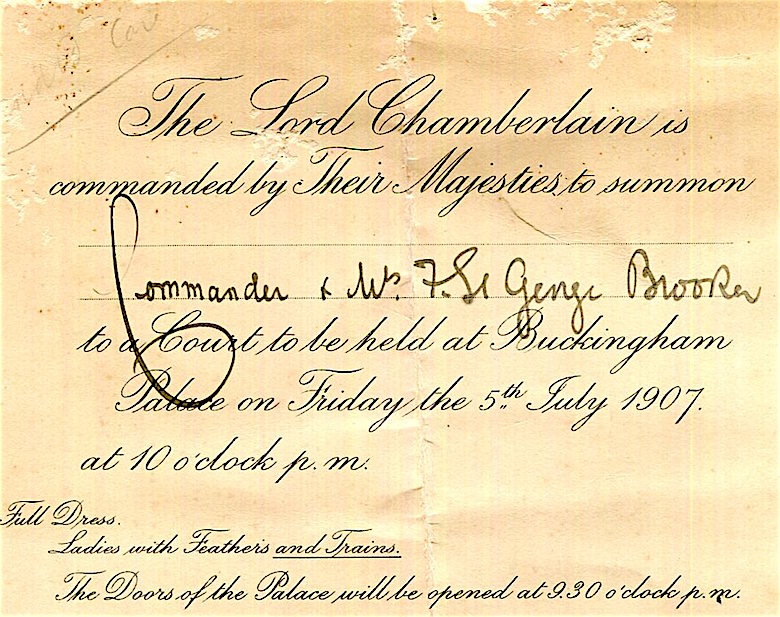 The Lord Chamberlain is
commanded by Their Majesties to summon
Commander & Mrs. F. St George Brooker
to a Court to be held at Buckingham
Palace on Friday the 5th July 1907.
at 10 o'clock p.m.
Full Dress.
Ladies with Feathers and Trains.
The Doors of the Palace will be opened at 9.30 o'clock p.m.